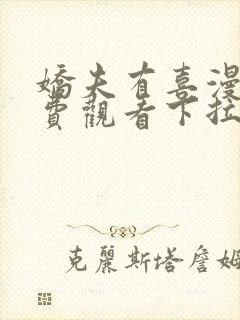 嬌夫有喜漫
費觀看下拉
克麗斯塔詹姆